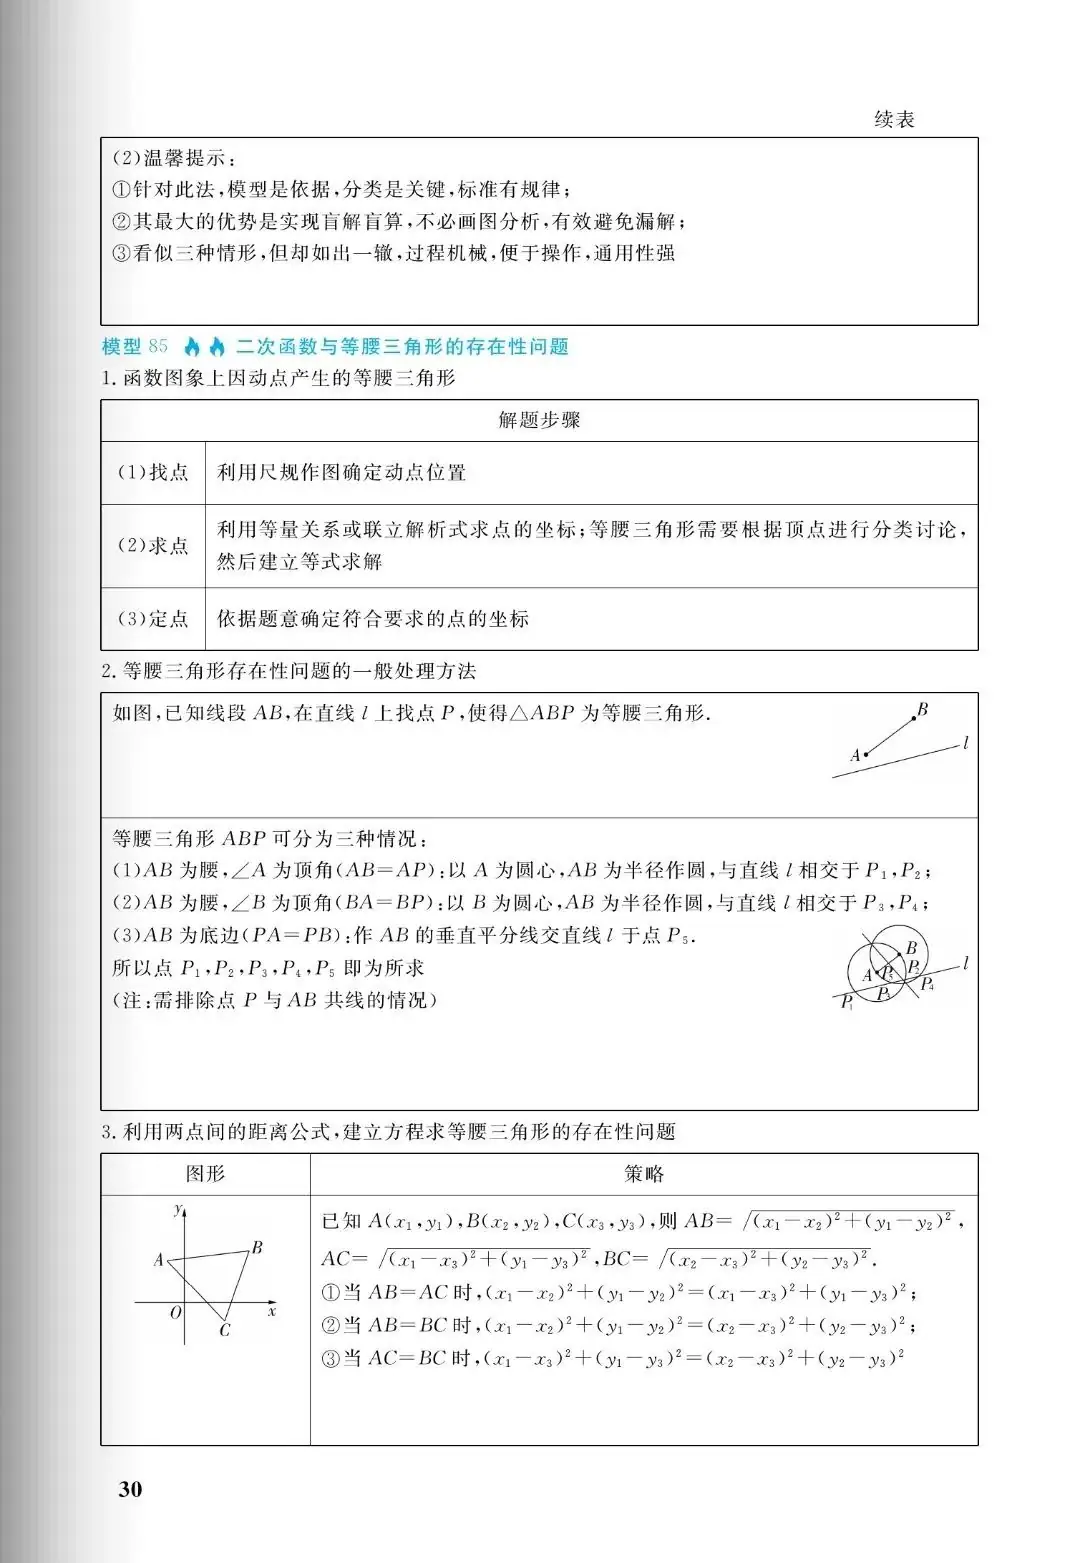 续表
(2)温馨提示:
①针对此法,模型是依据,分类是关键,标准有规律;
②其最大的优势是实现盲解盲算,不必画图分析,有效避免漏解;
③看似三种情形,但却如出一辙,过程机械,便于操作,通用性强
模型 85 二次函数与等腰三角形的存在性问题
1. 函数图象上因动点产生的等腰三角形
解题步骤
(1)找点 利用尺规作图确定动点位置
(2)求点 利用等量关系或联立解析式求点的坐标;等腰三角形需要根据顶点进行分类讨论,
然后建立等式求解
(3)定点 依据题意确定符合要求的点的坐标
2. 等腰三角形存在性问题的一般处理方法
如图,已知线段 AB,在直线 l 上找点 P,使得△ABP 为等腰三角形.
B
A
l
等腰三角形 ABP 可分为三种情况:
(1)AB 为腰,∠A 为顶角(AB=AP):以 A 为圆心,AB 为半径作圆,与直线 l 相交于 P₁,P₂;
(2)AB 为腰,∠B 为顶角(BA=BP):以 B 为圆心,AB 为半径作圆,与直线 l 相交于 P₃,P₄;
(3)AB 为底边(PA=PB):作 AB 的垂直平分线交直线 l 于点 P₅.
所以点 P₁,P₂,P₃,P₄,P₅ 即为所求
(注:需排除点 P 与 AB 共线的情况)
B
A P₅ P₂ l
P₁ P₃ P₄
3. 利用两点间的距离公式,建立方程求等腰三角形的存在性问题
图形 策略
y
A B
O x
C
已知 A(x₁,y₁),B(x₂,y₂),C(x₃,y₃),则 AB=√(x₁-x₂)²+(y₁-y₂)²,
AC=√(x₁-x₃)²+(y₁-y₃)²,BC=√(x₂-x₃)²+(y₂-y₃)².
①当 AB=AC 时,(x₁-x₂)²+(y₁-y₂)²=(x₁-x₃)²+(y₁-y₃)²;
②当 AB=BC 时,(x₁-x₂)²+(y₁-y₂)²=(x₂-x₃)²+(y₂-y₃)²;
③当 AC=BC 时,(x₁-x₃)²+(y₁-y₃)²=(x₂-x₃)²+(y₂-y₃)²
30